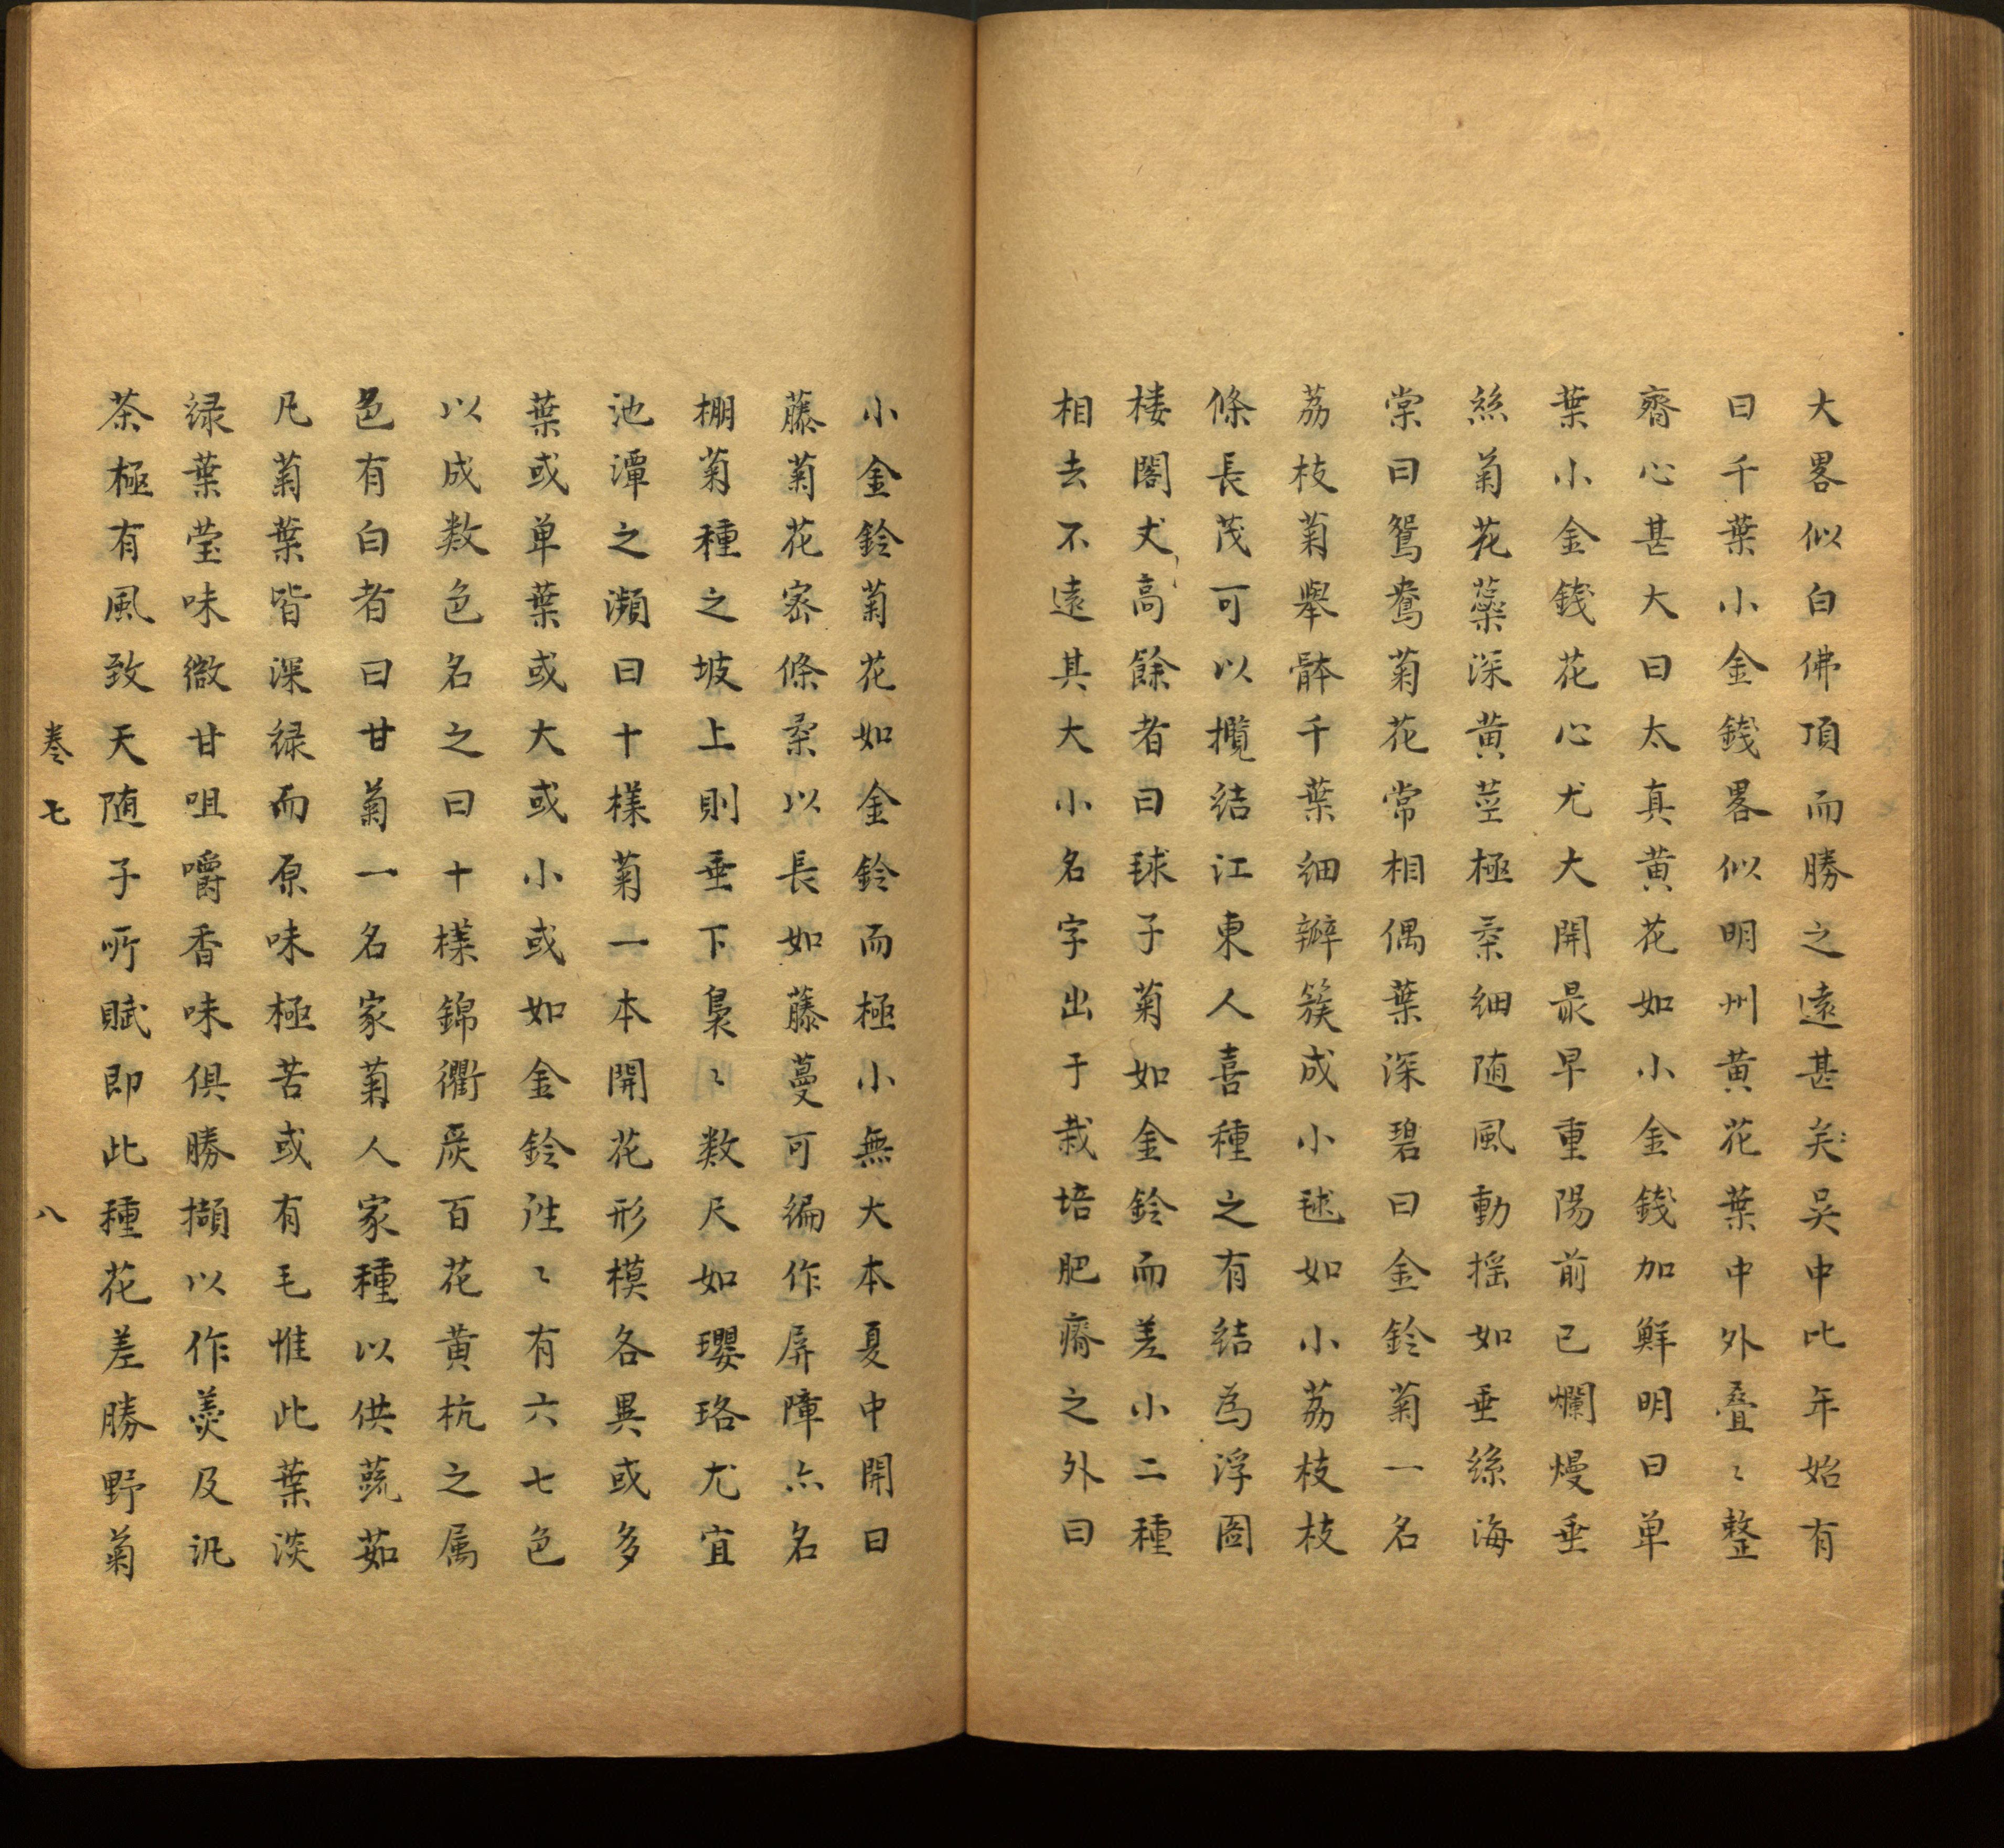 大畧似白佛頂而勝之遠甚矣吴中比年始有
曰千葉小金錢畧似明州黄花葉中外疊〻整
齊心甚大曰太真黄花如小金錢加鮮明曰单
葉小金錢花心尤大開最早重陽前已爛熳垂
絲菊花蘂深黄莖極柔細随風動揺如垂絲海
棠曰鴛鴦菊花常相偶葉深碧曰金鈴菊一名
荔枝菊舉骵千葉细瓣簇成小毬如小荔枝枝
條長茂可以攬结江東人喜種之有結為浮圖
楼閣丈高餘者曰毬子菊如金鈴而差小二種
相去不遠其大小名字出于栽培肥瘠之外曰
小金鈴菊花如金鈴而極小無大本夏中開曰
藤菊花宻條柔以長如藤蔓可編作屏障亦名
棚菊種之坡上則垂下裊〻数尺如瓔珞尤宜
池潭之瀕曰十様菊一本開花形模各異或多
葉或单葉或大或小或如金鈴往〻有六七色
以成数色名之曰十様錦衢嚴百花黄杭之属
色有白者曰甘菊一名家菊人家種以供蔬茹
凡菊葉皆深緑而原味極苦或有毛惟此葉淡
緑葉莹味微甘咀嚼香味俱勝擷以作羮及汎
茶極有風致天随子所賦即此種花差勝野菊
卷七
八